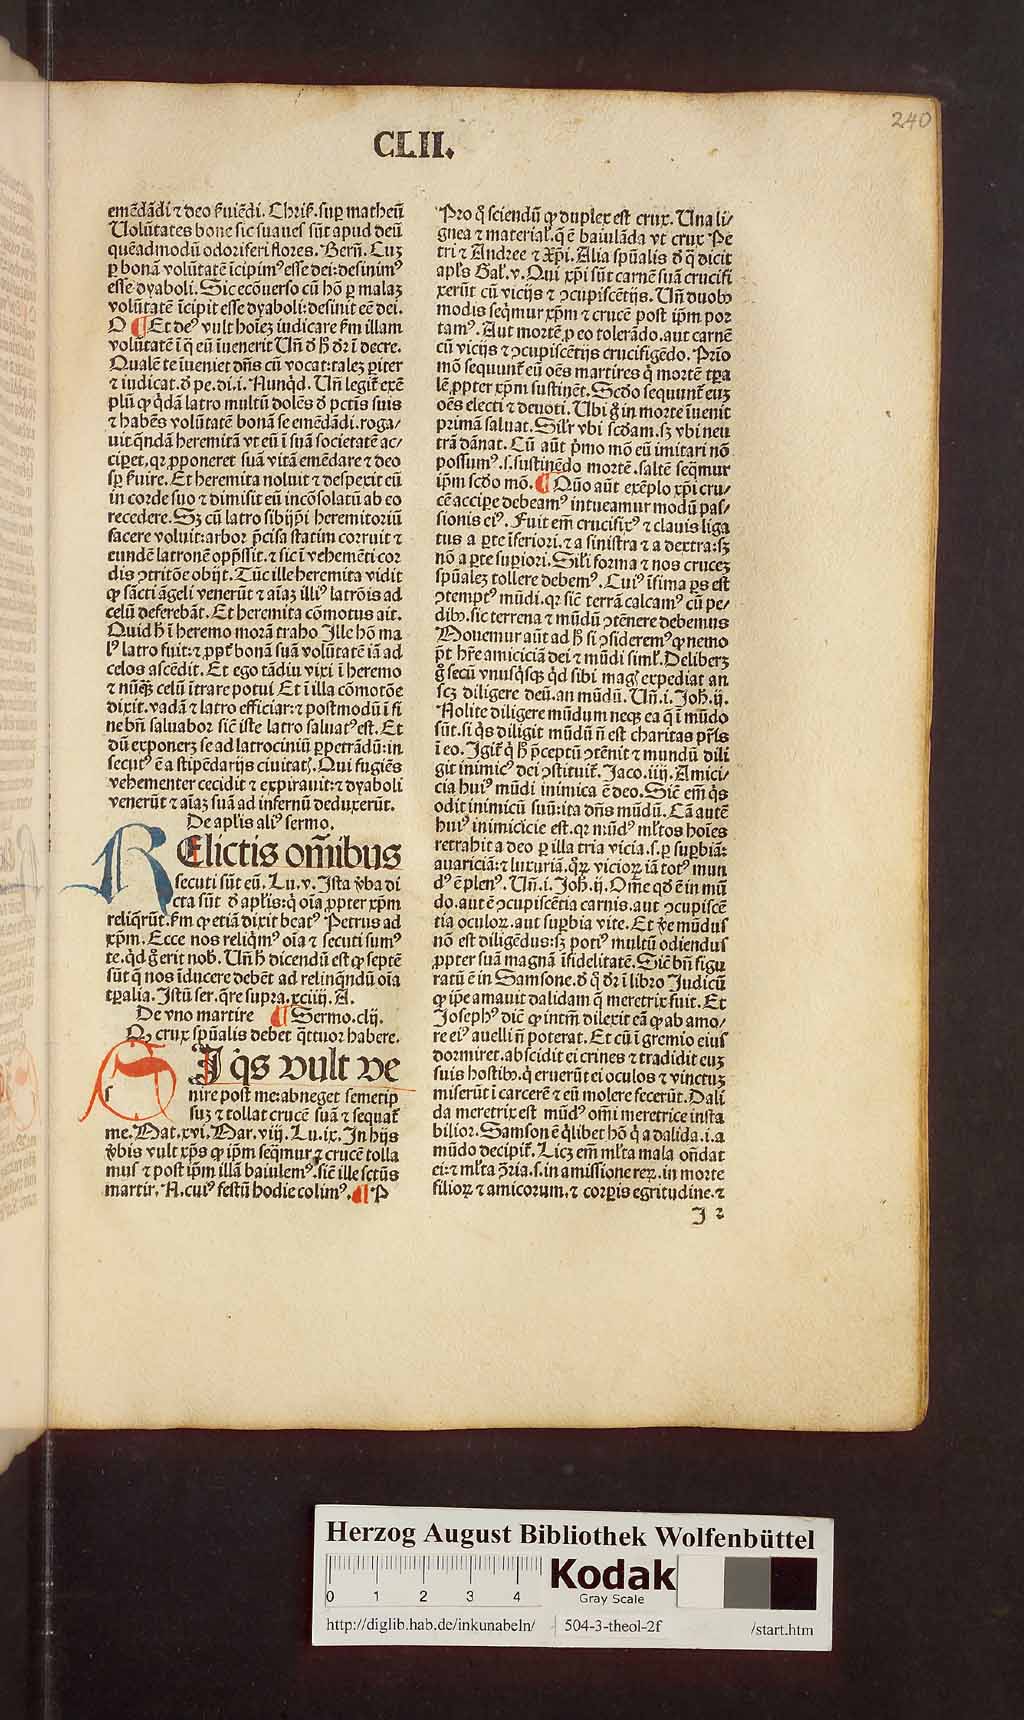 240
CLII.
emēdādi ⁊ deo ẜuiēdi. Chriẜ. suꝑ matheū
Volūtates bone sic suaues sūt apud deū
quēadmodū odoriferi flores. Bern̄. Cuꝫ
ꝑ bonā volūtatē īcipimꝰ esse dei: desinimꝰ
esse dyaboli. Sic ecōuerso cū hō ꝑ malaꝫ
volūtatē īcipit esse dyaboli: desinit eē dei.
O ¶ Et deꝰ vult hoīeꝫ iudicare ẜm illam
volūtatē ī q̄ eū īuenerit Vn̄ ð h̄ dr̄ ī decre.
Qualē te īueniet dn̄s cū vocat: taleꝫ ꝑiter
⁊ iudicat. ð pe. di. i. Nunqͥd. Vn̄ legit̄ exē
plū ꝙ qͥdā latro multū dolēs ð pctīs suis
⁊ habēs volūtatē bonā se emēdādi. roga/
uit qn̄dā heremitā vt eū ī suā societatē ac/
ciꝑet, qꝛ ꝓponeret suā vitā emēdare ⁊ deo
sꝑ ẜuire. Et heremita noluit ⁊ despexit eū
in corde suo ⁊ dimisit eū incōsolatū ab eo
recedere. Sꝫ cū latro sibijp̄i heremitoriū
facere voluit: arbor p̄cisa statim corruit ⁊
eundē latronē opp̄ssit. ⁊ sic ī vehemēti cor
dis ꝯtritōe obijt. Tūc ille heremita vidit
ꝙ sācti āgeli venerūt ⁊ aīaꝫ illiꝰ latrōis ad
celū deferebāt. Et heremita cōmotus ait.
Quid h̄ ī heremo morā traho Ille hō ma
lꝰ latro fuit: ⁊ ꝓpt̄ bonā suā volūtatē iā ad
celos ascēdit. Et ego tādiu vixi ī heremo
⁊ nūqꝫ celū ītrare potui Et ī illa cōmotōe
dixit. vadā ⁊ latro efficiar: ⁊ postmodū ī fi
ne bn̄ saluabor sic̄ iste latro saluatꝰ est. Et
dū exponerꝫ se ad latrociniū ꝑpetrādū: in
secutꝰ ē a stipēdarijs ciuitatꝭ. Qui fugiēs
vehementer cecidit ⁊ expirauit: ⁊ dyaboli
venerūt ⁊ aīaꝫ suā ad infernū deduxerūt.
De apl̄is aliꝰ sermo.
RElictis om̄ibus
secuti sūt eū. Lu. v. Ista v̄ba di
cta sūt ð apl̄is: q̄ oīa ꝓpter xp̄m
reliq̄rūt. ẜm ꝙ etiā dixit beatꝰ Petrus ad
xp̄m. Ecce nos reliqͥmꝰ oīa ⁊ secuti sumꝰ
te. qͥd g̊ erit nob̄. Vn̄ h̄ dicendū est ꝙ septē
sūt q̄ nos īducere debēt ad relinq̄ndū oīa
tꝑalia. Istū ser. q̄re supra. xciiij. A.
De vno martire ¶ Sermo. clij.
Qꝫ crux spūalis debet q̄ttuor habere.
SI qͥs vult ve
nire post me: abneget semetip
suꝫ ⁊ tollat crucē suā ⁊ sequat̄
me. Mat. xvi. Mar. viij. Lu. ix. In hijs
v̄bis vult xp̄s ꝙ ip̄m seqͥmur ⁊ crucē tolla
mus ⁊ post ip̄m illā baiulemꝰ. sic̄ ille sctūs
martir. N. cuiꝰ festū hodie colimꝰ. ¶ P
Pro qͦ sciendū ꝙ duplex est crux. Vna li/
gnea ⁊ material̓. q̄ ē baiulāda vt crux Pe
tri ⁊ Andree ⁊ xp̄i. Alia spūalis ð q̄ dicit
apl̄s Gal̓. v. Qui xp̄i sūt carnē suā crucifi
xerūt cū vicijs ⁊ ꝯcupiscētijs. Vn̄ duobꝫ
modis seqͥmur xp̄m ⁊ crucē post ip̄m por
tamꝰ. Aut mortē ꝓ eo tolerādo. aut carnē
cū vicijs ⁊ ꝯcupiscētijs crucifigēdo. Prīo
mō sequunt̄ eū oēs martires qͥ mortē tꝑa
lē ꝓpter xp̄m sustinēt. Scd̄o sequunt̄ euꝫ
oēs electi ⁊ deuoti. Vbi g̊ in morte īuenit
primā saluat. Sil̓r vbi scd̄am. sꝫ vbi neu
trā dānat. Cū aūt p̄mo mō eū imitari nō
possumꝰ. s. sustinēdo mortē. saltē seqͥmur
ip̄m scd̄o mō. ¶ Qūo aūt exēplo xp̄i cru/
cē accipe debeamꝰ intueamur modū pas/
sionis eiꝰ. Fuit em̄ crucifixꝰ ⁊ clauis liga
tus a ꝑte īferiori. ⁊ a sinistra ⁊ a dextra: sꝫ
nō a ꝑte suꝑiori. Sil̓i forma ⁊ nos cruceꝫ
spūaleꝫ tollere debemꝰ. Cuiꝰ īfima ꝑs est
ꝯtemptꝰ mūdi. qꝛ sic̄ terrā calcamꝰ cū pe/
dibꝫ. sic terrena ⁊ mūdū ꝯtēnere debemus
Mouemur aūt ad h̄ si ꝯsideremꝰ ꝙ nemo
p̄t hr̄e amiciciā dei ⁊ mūdi siml̓. Deliberꝫ
g̊ secū vnusqͥsqꝫ qͥd sibi magꝭ expediat an
scꝫ diligere deū. an mūdū. Vn̄. i. Joh̄. ij.
Nolite diligere mūdum neqꝫ ea q̄ ī mūdo
sūt. si qͥs diligit mūdū n̄ est charitas pr̄is
ī eo. Igit̄ qͥ h̄ p̄ceptū ꝯtēnit ⁊ mundū dili
git inimicꝰ dei ꝯstituit̄. Jaco. iiij. Amici/
cia huiꝰ mūdi inimica ē deo. Sic̄ em̄ qͥs
odit inimicū suū: ita dn̄s mūdū. Cā autē
huiꝰ inimicicie est. qꝛ mūdꝰ ml̓tos hoīes
retrahit a deo ꝑ illa tria vicia. s. ꝑ suꝑbiā:
auariciā: ⁊ luxuriā. qͥꝝ vicioꝝ iā totꝰ mun
dꝰ ē plenꝰ. Vn̄. i. Joh̄. ij. Om̄e qd̓ ē in mū
do. aut ē ꝯcupiscētia carnis. aut ꝯcupiscē
tia oculoꝝ. aut suꝑbia vite. Et v̄e mūdus
nō est diligēdus: sꝫ potiꝰ multū odiendus
ꝓpter suā magnā īfidelitatē. Sic̄ bn̄ figu
ratū ē in Samsone. ð qͦ dr̄ ī libro Judicū
ꝙ ip̄e amauit dalidam q̄ meretrix fuit. Et
Josephꝰ dic̄ ꝙ intm̄ dilexit eā ꝙ ab amo/
re eiꝰ auelli n̄ poterat. Et cū ī gremio eius
dormiret. abscidit ei crines ⁊ tradidit euꝫ
suis hostibꝫ. qͥ eruerūt ei oculos ⁊ vinctuꝫ
miserūt ī carcerē ⁊ eū molere fecerūt. Dali
da meretrix est mūdꝰ om̄i meretrice insta
bilior. Samson ē qͥlibet hō qͥ a dalida. i. a
mūdo decipit̄. Licꝫ em̄ ml̓ta mala on̄dat
ei: ⁊ ml̓ta ꝯ̄ria. s. in amissione reꝝ. in morte
filioꝝ ⁊ amicorum. ⁊ corꝑis egritudine. ⁊
I 2
Herzog August Bibliothek Wolfenbüttel
0 1 2 3 4
Kodak
Gray Scale
http://diglib.hab.de/inkunabeln/ 504-3-theol-2f /start.htm